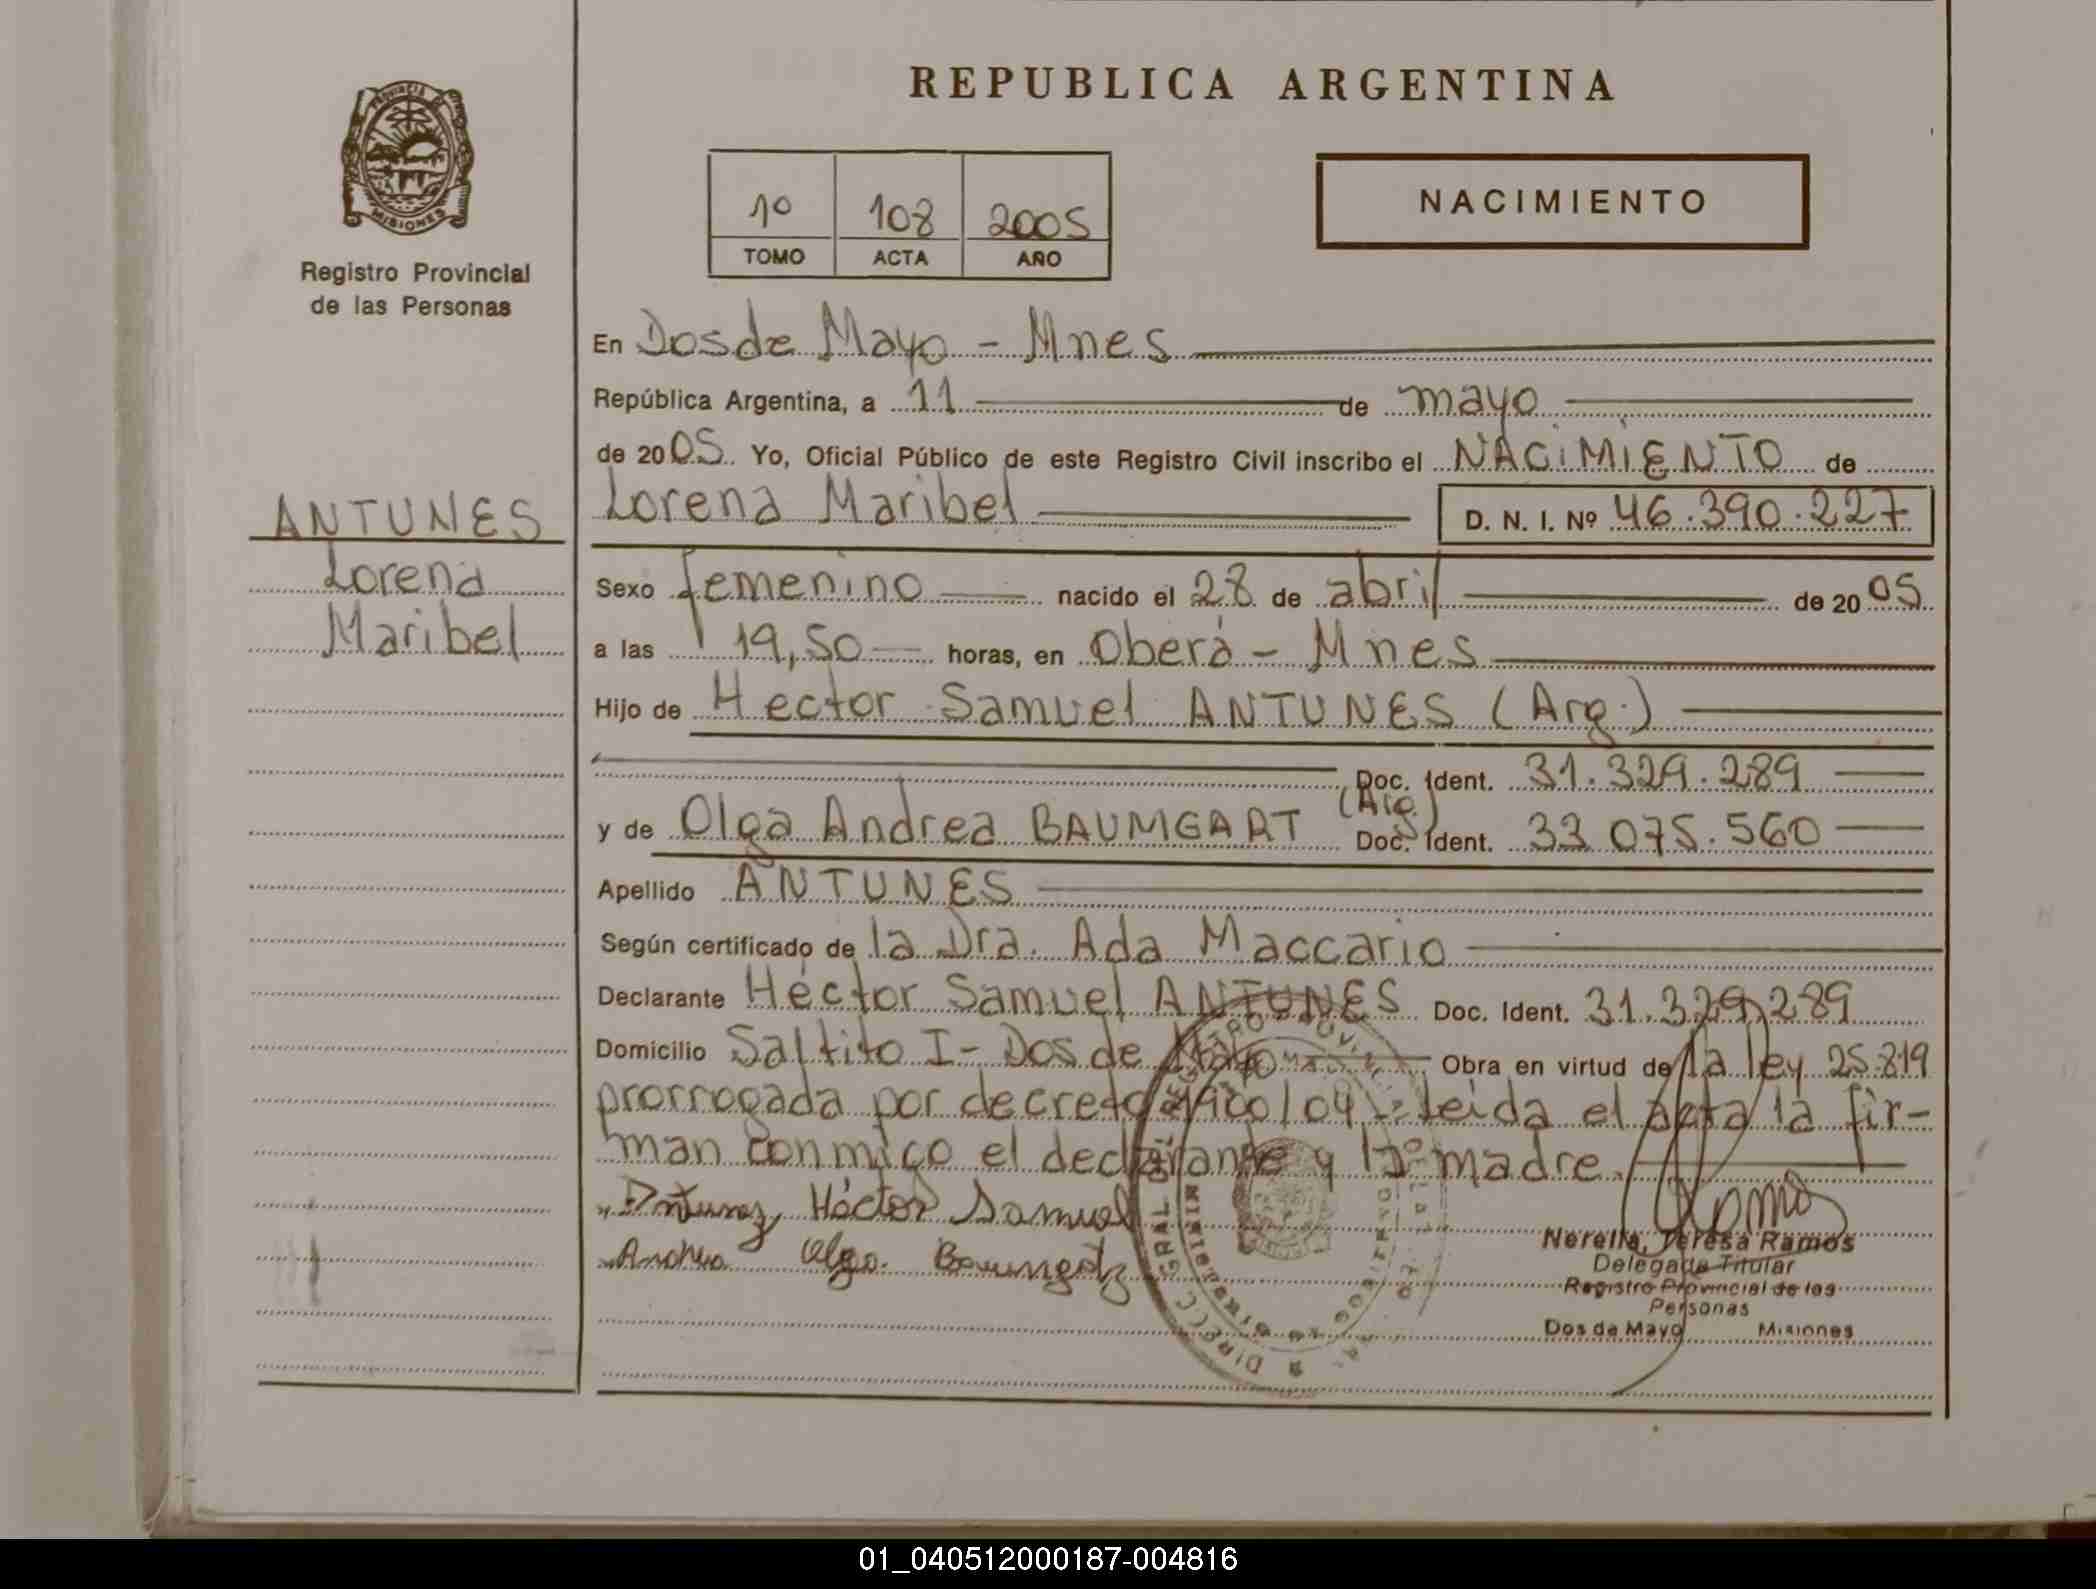 REPUBLICA ARGENTINA
PROVINCIA DE
MISIONES
Registro Provincial
de las Personas
1º 108 2005
TOMO ACTA AÑO
NACIMIENTO
En Dos de Mayo - Mnes
República Argentina, a 11 de mayo
de 2005. Yo, Oficial Público de este Registro Civil inscribo el NACIMIENTO de
ANTUNES
Lorena
Maribel
Lorena Maribel D. N. I. Nº 46.390.227
Sexo femenino nacido el 28 de abril de 2005
a las 19,50 horas, en Oberá - Mnes
Hijo de Hector Samuel ANTUNES (Arg.)
Doc. Ident. 31.329.289
y de Olga Andrea BAUMGART (Arg.) Doc. Ident. 33 075.560
Apellido ANTUNES
Según certificado de la Dra. Ada Maccario
Declarante Héctor Samuel ANTUNES Doc. Ident. 31.329.289
Domicilio Saltito I - Dos de Mayo Obra en virtud de la ley 25.819
prorrogada por decreto /04 - leida el acta la fir-
man conmigo el declarante y la madre.
Antunez Héctor Samuel
Andrea Olga
Nerella, Teresa Ramos
Delegada Titular
Registro Provincial de las
Personas
Dos de Mayo Misiones
01_040512000187-004816